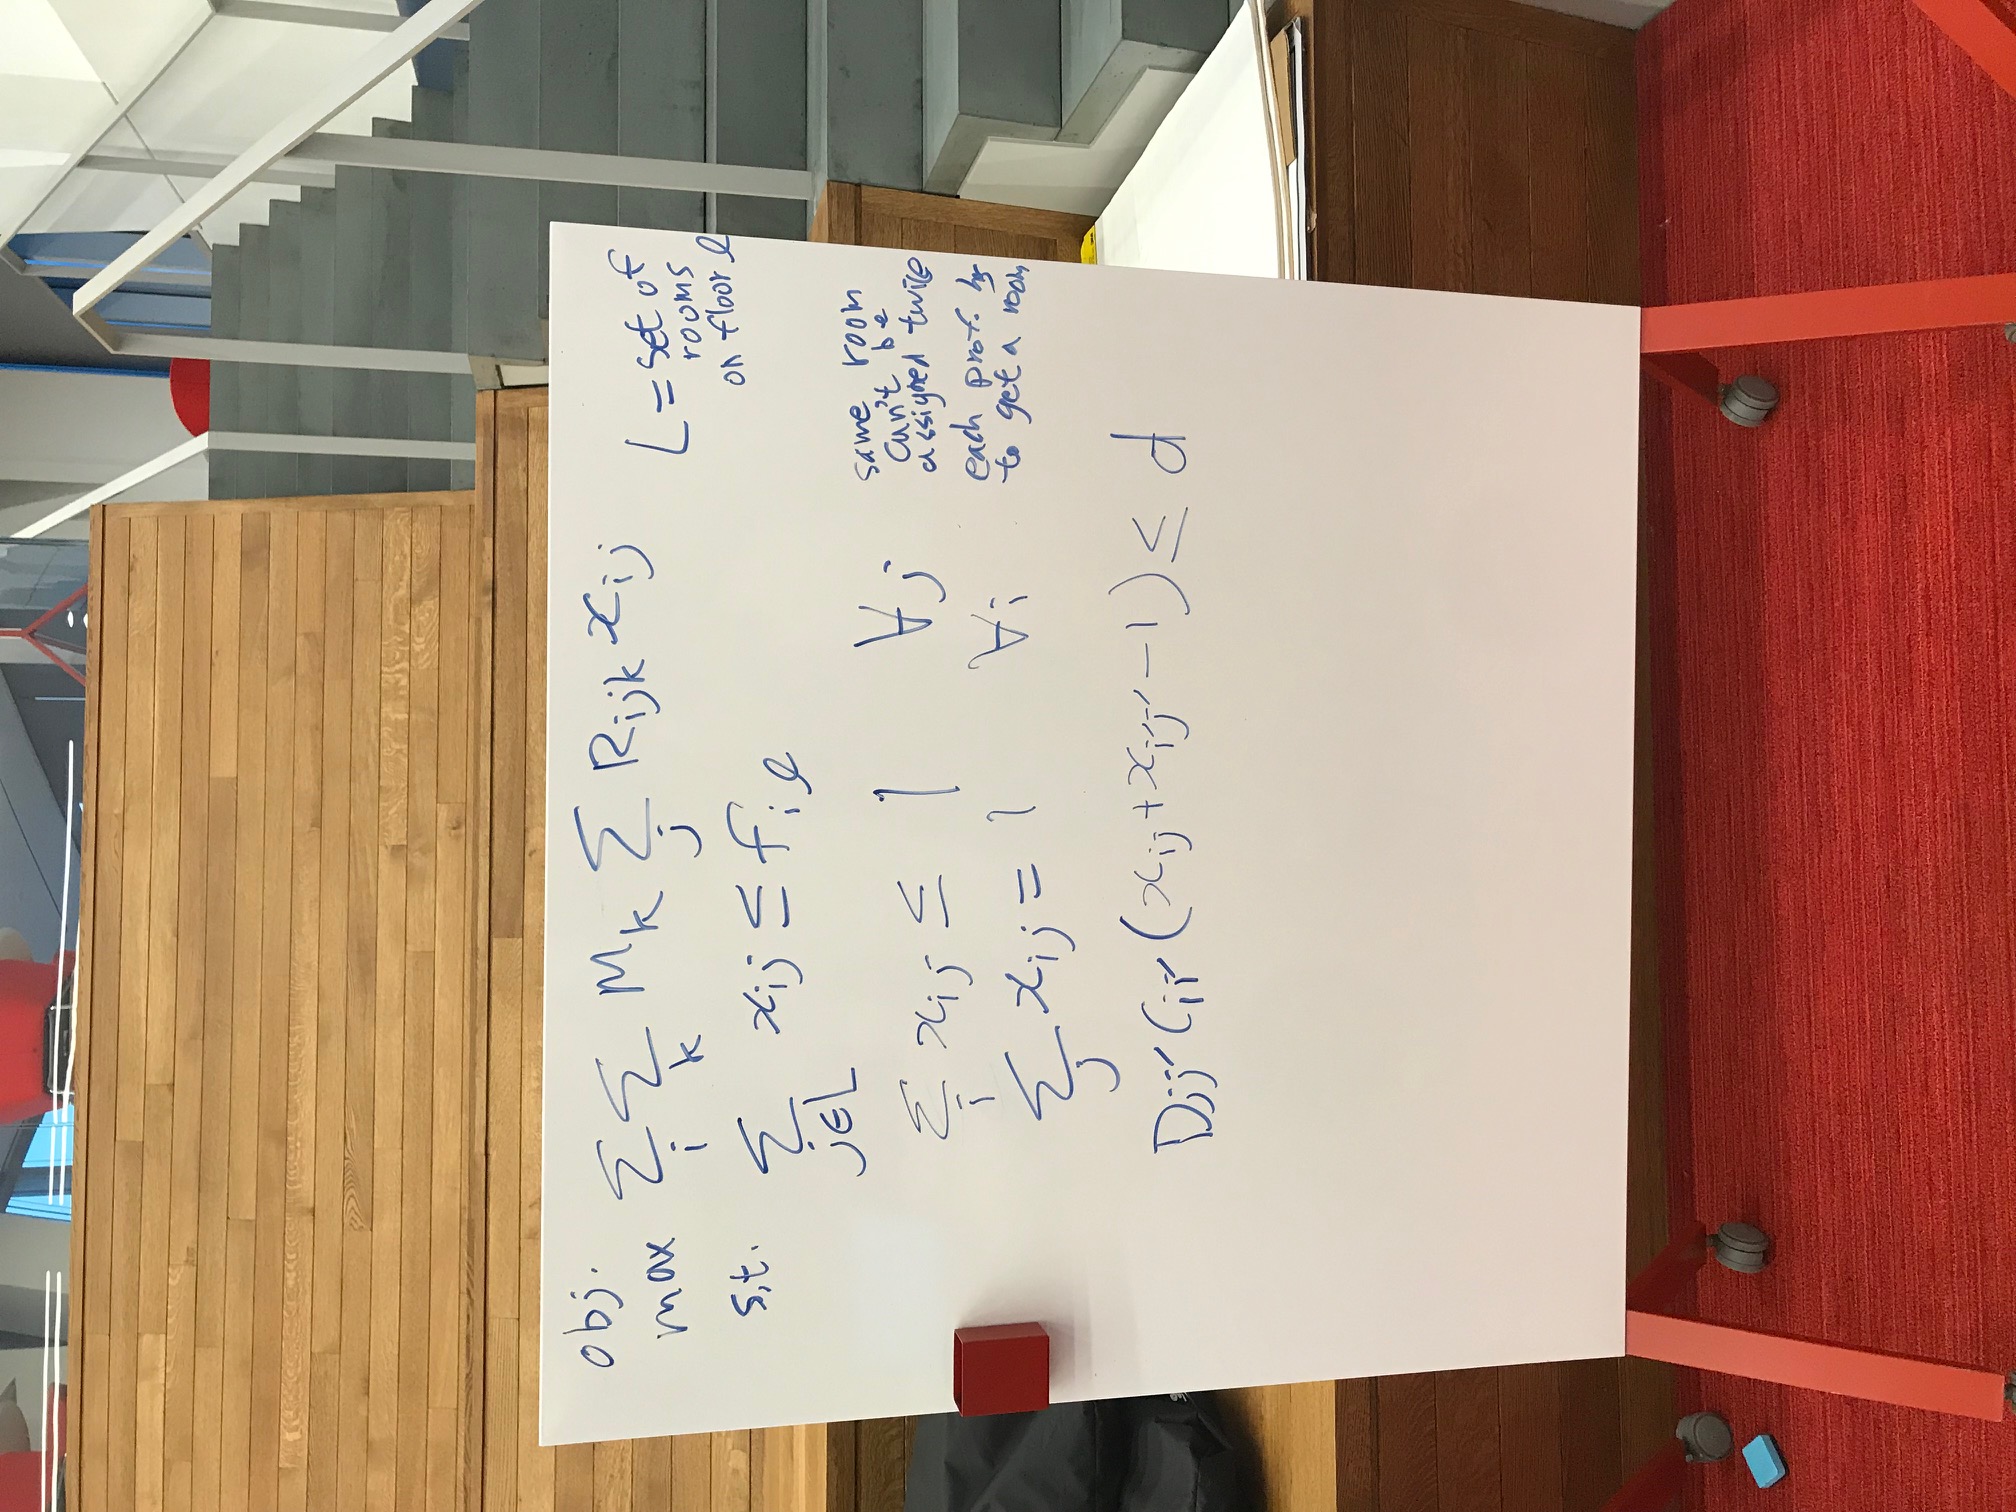 obj.
max ∑_i ∑_k M_k ∑_j R_ijk x_ij
L = set of
rooms
on floor ℓ
s,t. ∑_{j∈L} x_ij ≤ f_iℓ
∑_i x_ij ≤ 1 ∀j
same room
can't be
assigned twice
∑_j x_ij = 1 ∀i
each prof. has
to get a room
D_jj' C_ii' (x_ij + x_i'j' − 1) ≤ d